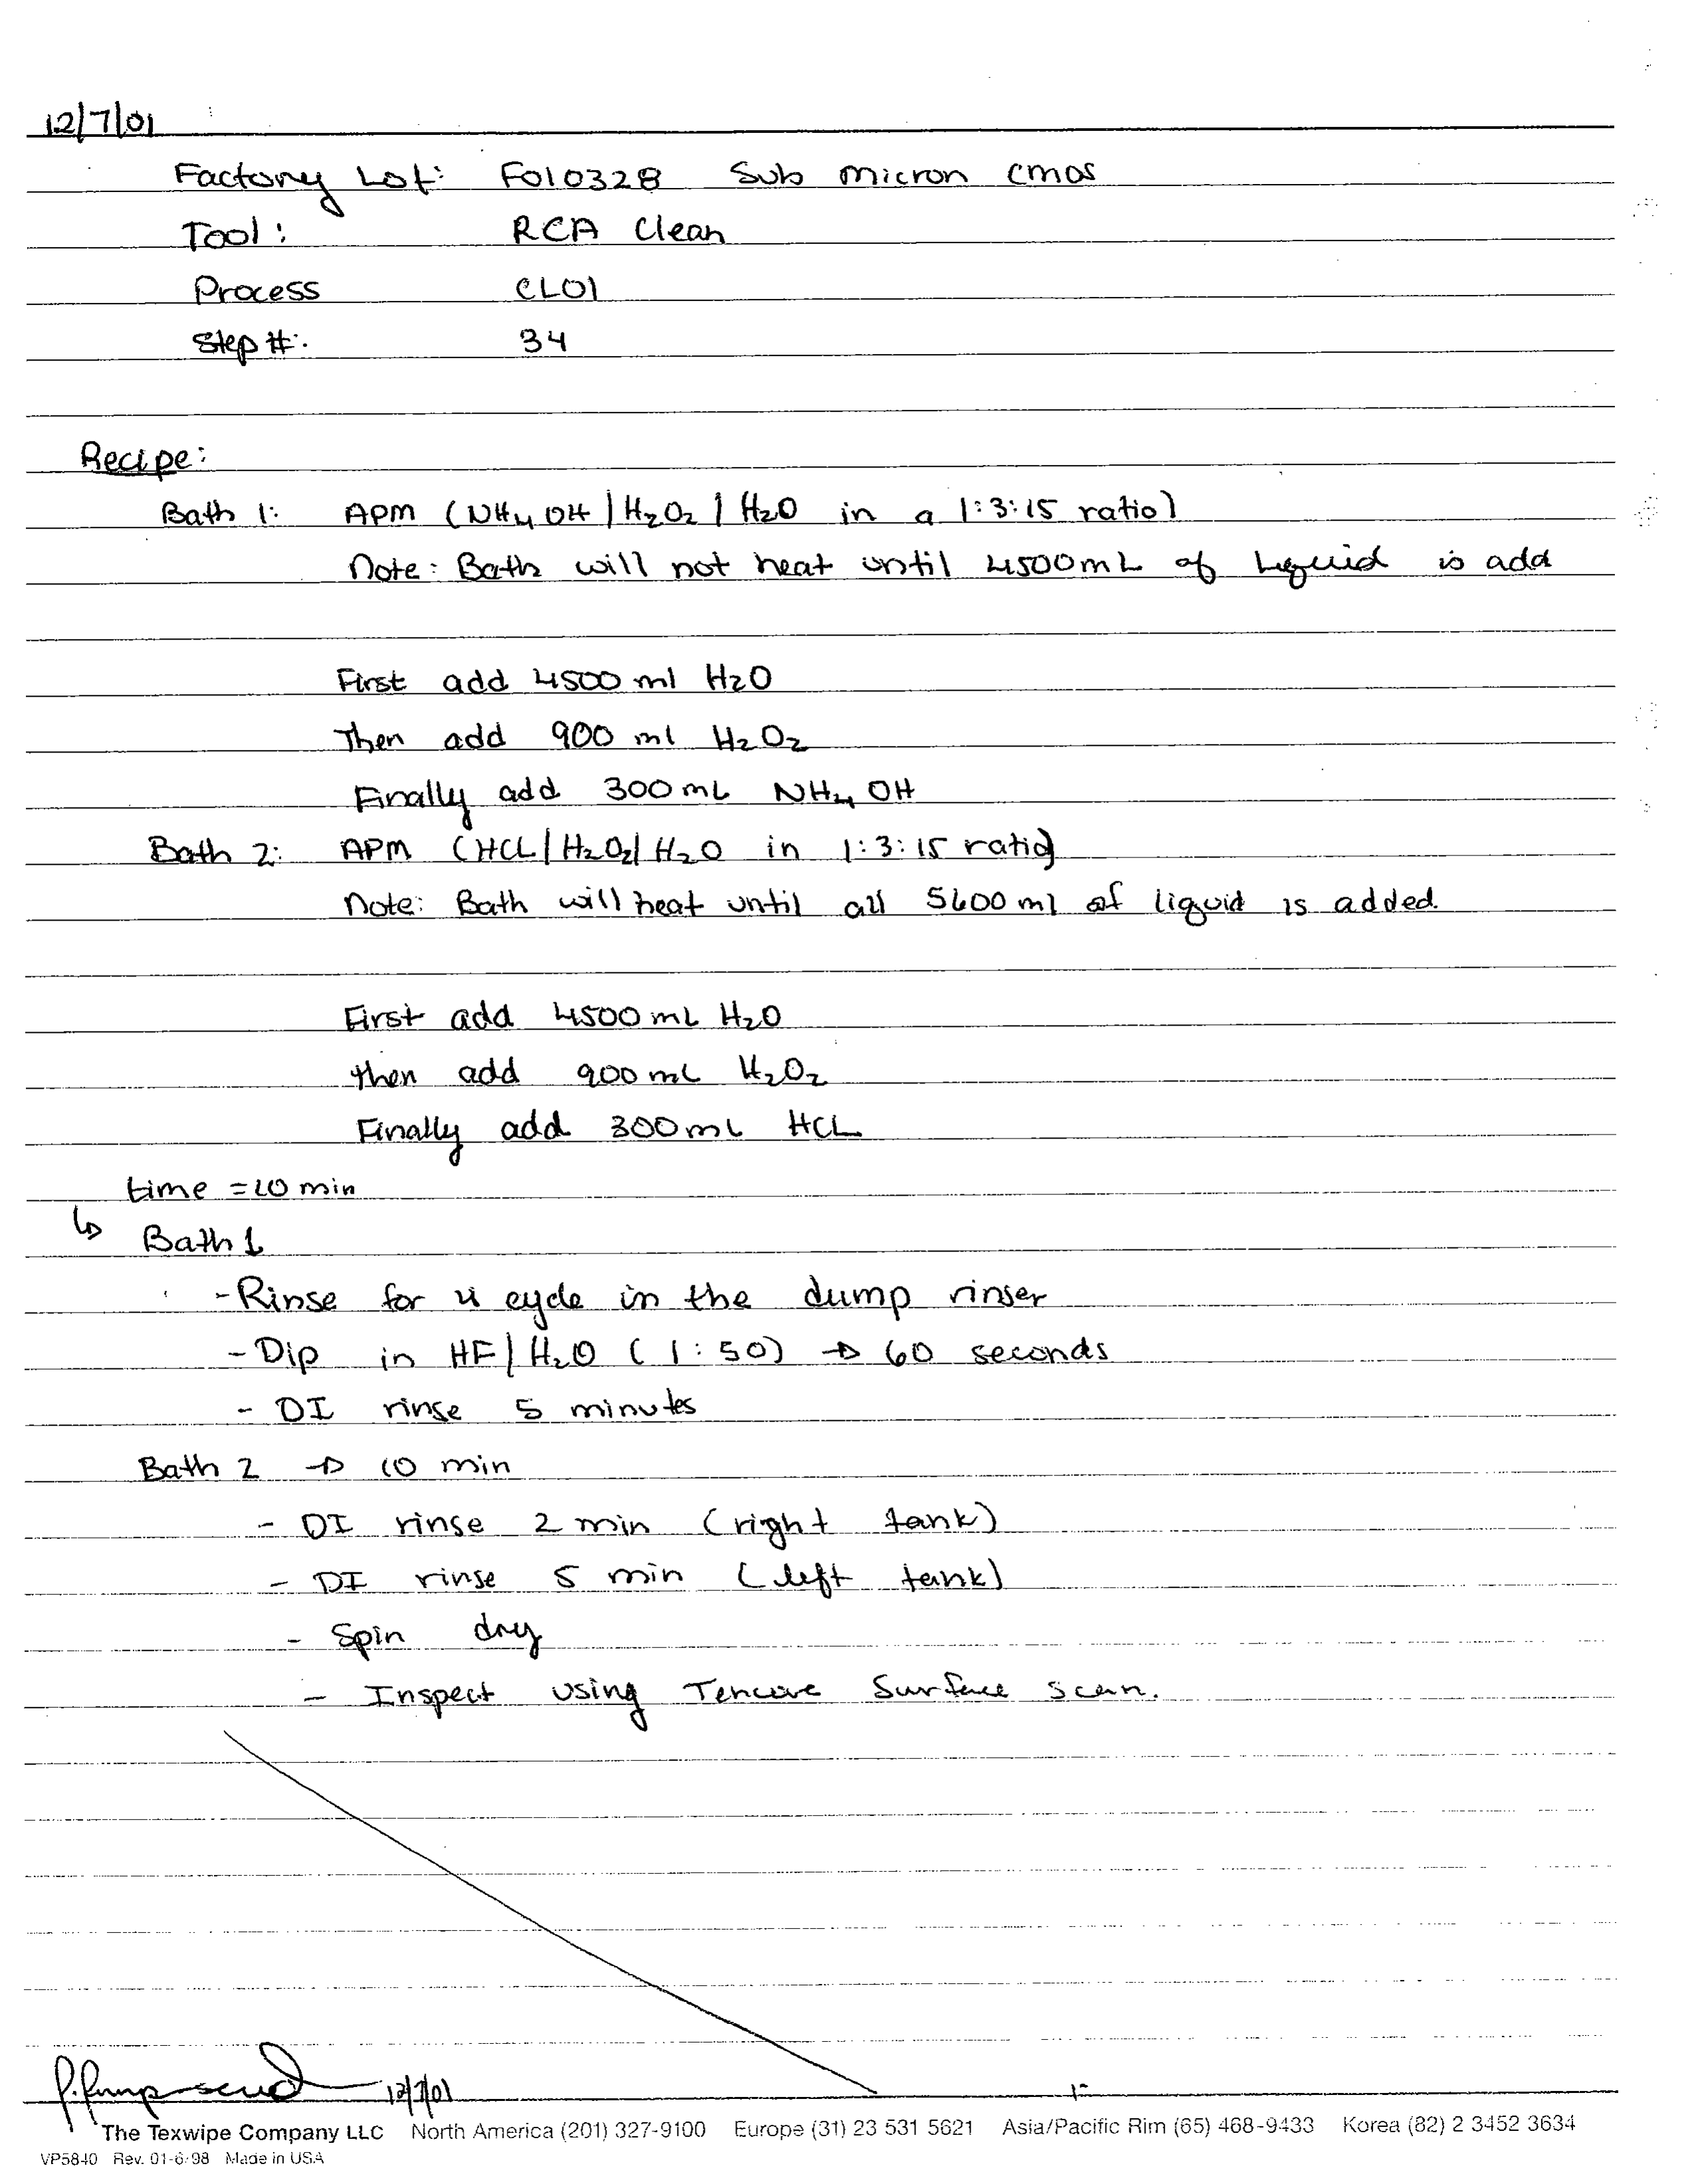 12/7/01
Factory Lot: F010328 Sub micron cmos
Tool: RCA Clean
Process CL01
Step #: 34
Recipe:
Bath 1: APM (NH4OH/H2O2/H2O in a 1:3:15 ratio)
Note: Bath will not heat until 4500mL of liquid is add
First add 4500 ml H2O
Then add 900 ml H2O2
Finally add 300mL NH4OH
Bath 2: APM (HCL/H2O2/H2O in 1:3:15 ratio)
Note: Bath will heat until all 5600 ml of liquid is added.
First add 4500mL H2O
then add 900mL H2O2
Finally add 300mL HCL
time = 10 min
↳ Bath 1
- Rinse for 4 cycle in the dump rinser
- Dip in HF/H2O (1:50) → 60 seconds
- DI rinse 5 minutes
Bath 2 → 10 min
- DI rinse 2 min (right tank)
- DI rinse 5 min (left tank)
- Spin dry
- Inspect using Tencore Surface scan.
12/7/01
The Texwipe Company LLC North America (201) 327-9100 Europe (31) 23 531 5621 Asia/Pacific Rim (65) 468-9433 Korea (82) 2 3452 3634
VP5840 Rev. 01-6/98 Made in USA